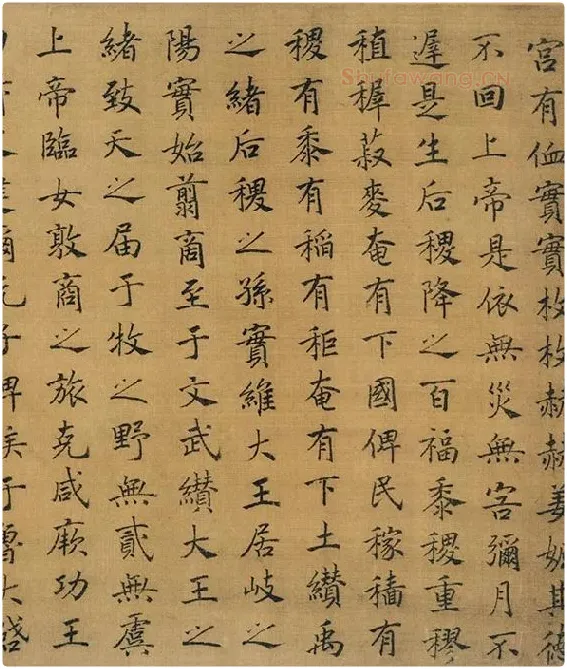 宮有侐實實枚枚赫赫姜嫄其德
不回上帝是依無災無害彌月不
遲是生后稷降之百福黍稷重穋
稙稺菽麥奄有下國俾民稼穡有
稷有黍有稲有秬奄有下土纘禹
之緒后稷之孫實維大王居岐之
陽實始翦商至于文武纘大王之
緒致天之届于牧之野無貳無虞
上帝臨女敦商之旅克咸厥功王
爾元子俾侯于魯大啓
Shufawang.CN